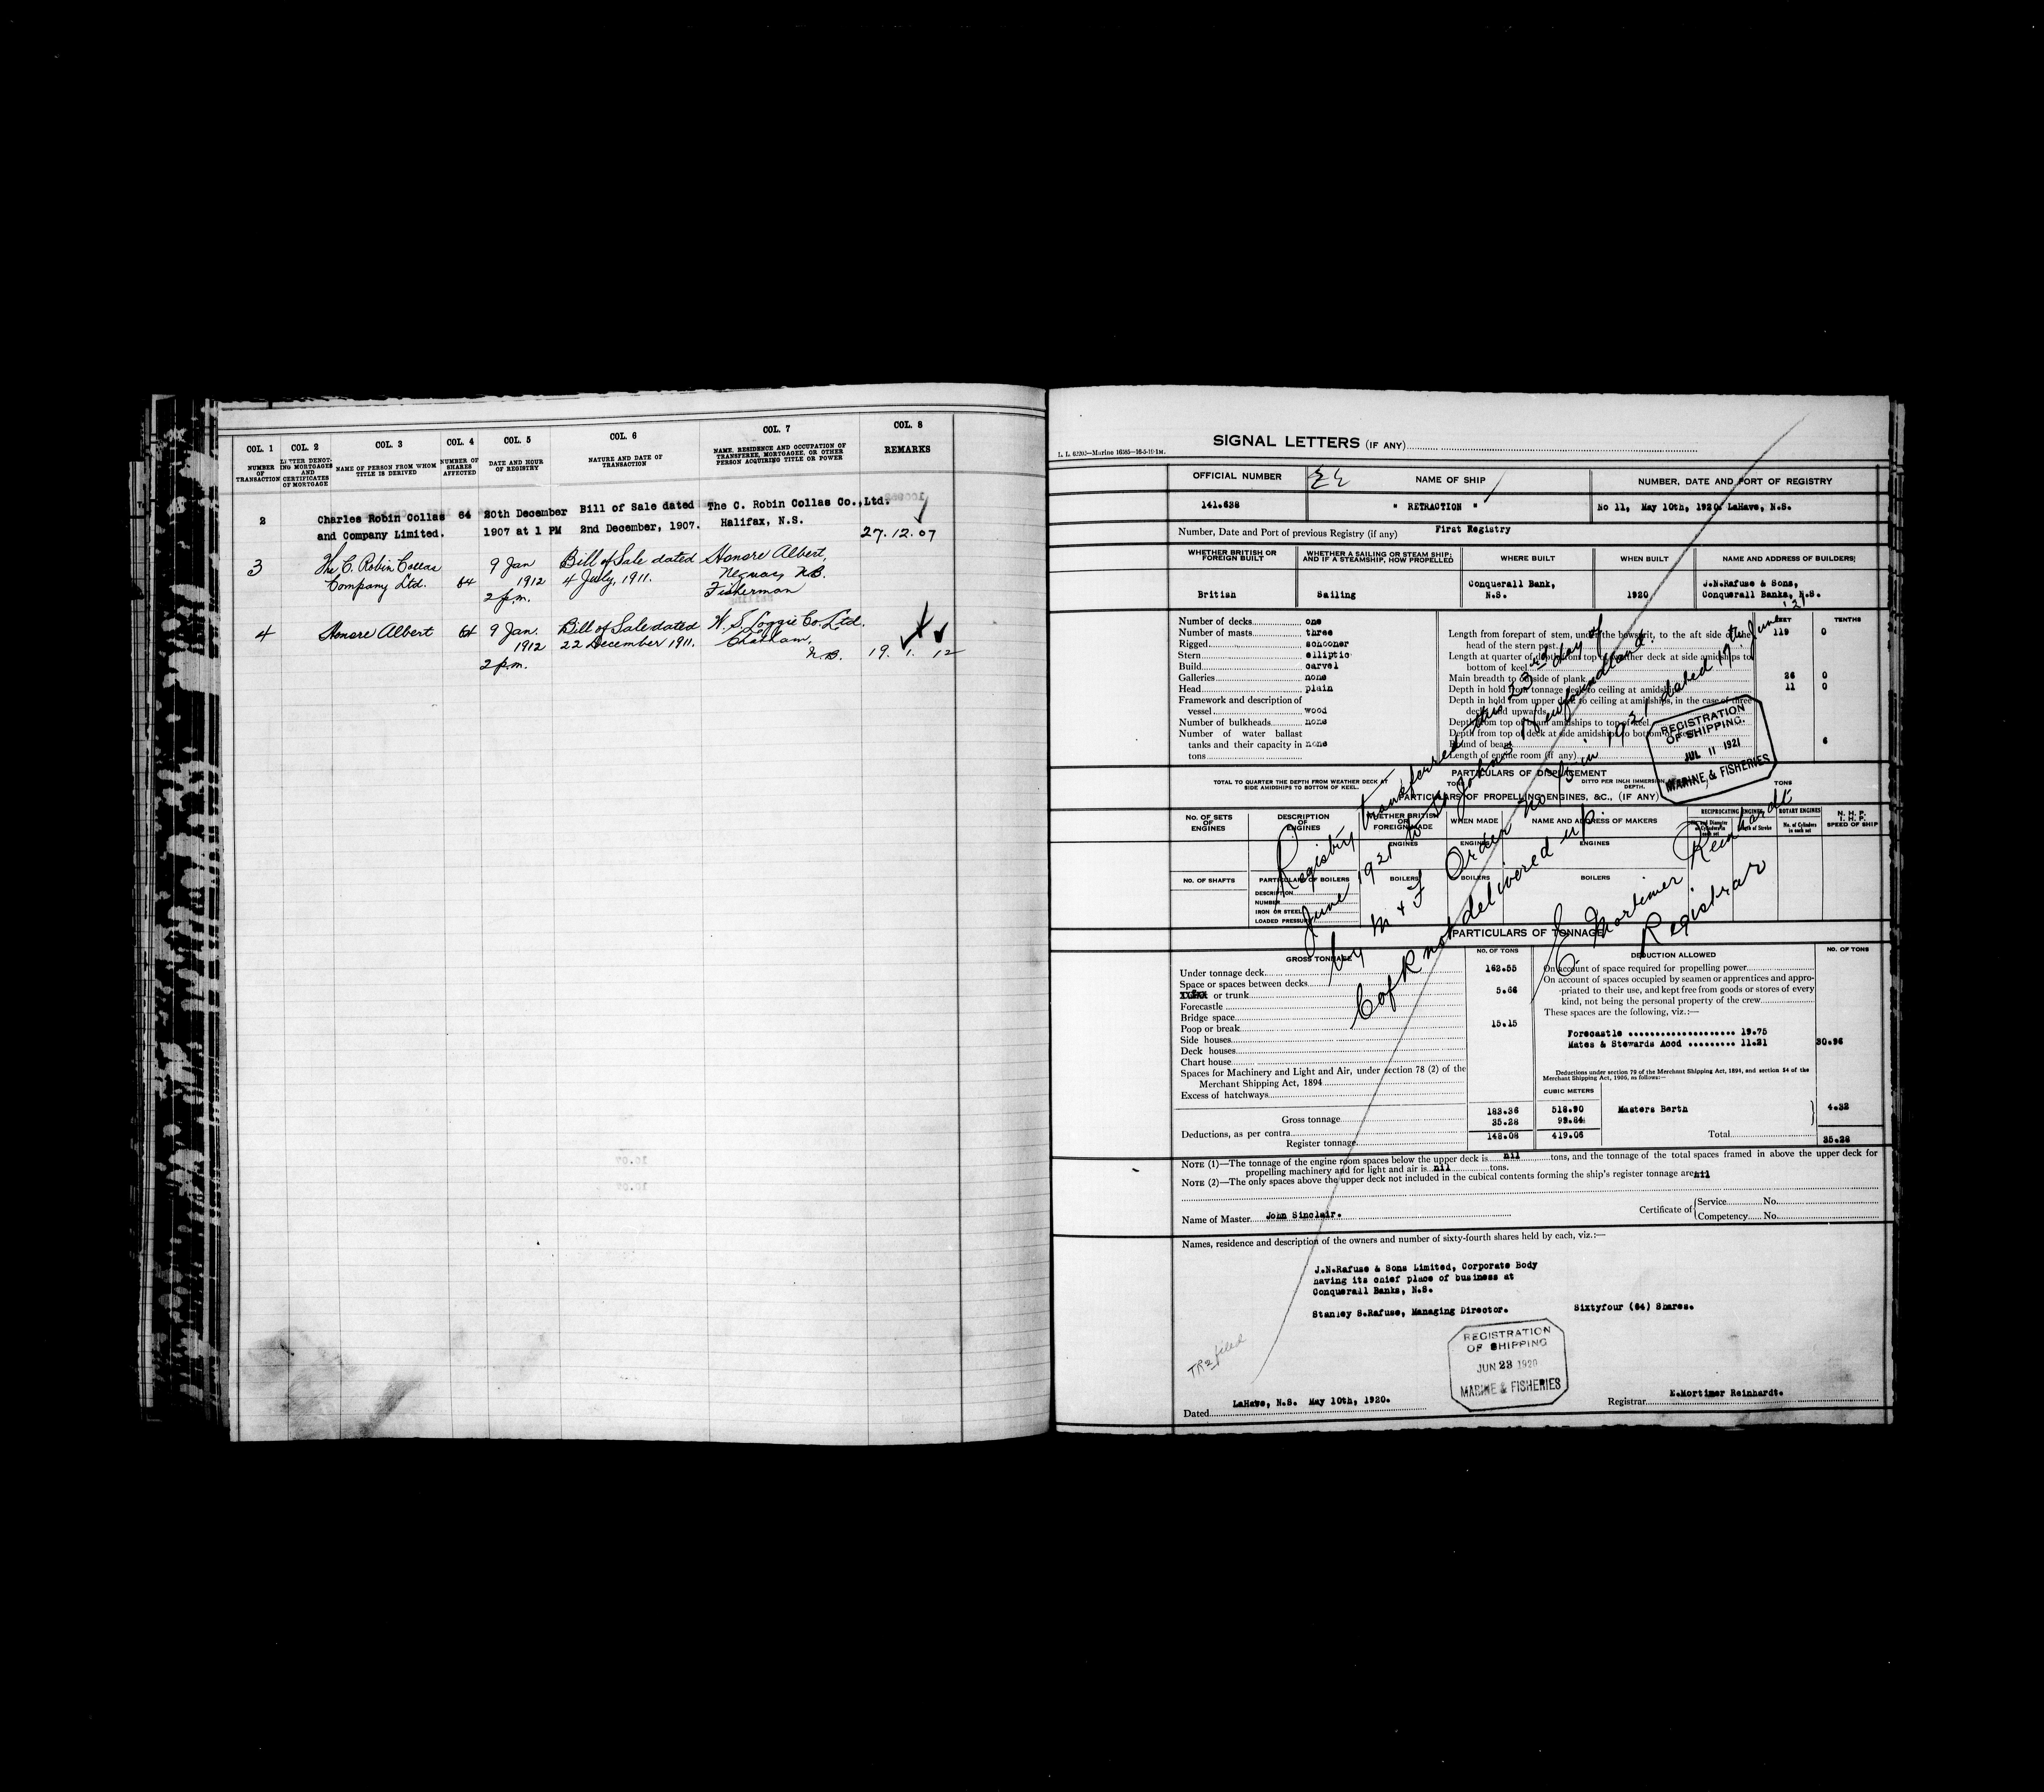 COL. 1 COL. 2 COL. 3 COL. 4 COL. 5 COL. 6 COL. 7 COL. 8
NUMBER OF TRANSACTION
LETTER DENOTING MORTGAGES AND CERTIFICATES OF MORTGAGE
NAME OF PERSON FROM WHOM TITLE IS DERIVED
NUMBER OF SHARES AFFECTED
DATE AND HOUR OF REGISTRY
NATURE AND DATE OF TRANSACTION
NAME, RESIDENCE AND OCCUPATION OF TRANSFEREE, MORTGAGEE, OR OTHER PERSON ACQUIRING TITLE OR POWER
REMARKS
2 Charles Robin Collas 64 20th December Bill of Sale dated The C. Robin Collas Co.,Ltd.
and Company Limited. 1907 at 1 PM 2nd December, 1907. Halifax, N.S. 27.12.07
3 The C. Robin Collas 9 Jan Bill of Sale dated Honore Albert,
Company Ltd. 64 1912 4 July, 1911. Neguac N.B.
2 p.m. Fisherman
4 Honore Albert 64 9 Jan. Bill of Sale dated W. S. Loggie Co. Ltd.
1912 22 December 1911. Chatham,
2 p.m. N.B. 19. 1. 12
L. L. 62205—Marine 16585—16-5-19-1M.
SIGNAL LETTERS (IF ANY)
OFFICIAL NUMBER NAME OF SHIP NUMBER, DATE AND PORT OF REGISTRY
141.638 " RETRACTION " No 11, May 10th, 1920. LaHave, N.S.
Number, Date and Port of previous Registry (if any) First Registry
WHETHER BRITISH OR FOREIGN BUILT
WHETHER A SAILING OR STEAM SHIP; AND IF A STEAMSHIP, HOW PROPELLED
WHERE BUILT WHEN BUILT NAME AND ADDRESS OF BUILDERS
British Sailing Conquerall Bank, N.S. 1920 J.N.Rafuse & Sons,
Conquerall Banks, N.S.
Number of decks one
Number of masts three
Rigged schooner
Stern elliptic
Build carvel
Galleries none
Head plain
Framework and description of
vessel wood
Number of bulkheads none
Number of water ballast
tanks and their capacity in none
tons
FEET TENTHS
Length from forepart of stem, under the bowsprit, to the aft side of the
head of the stern post 119 0
Length at quarter of depth from top of weather deck at side amidships to
bottom of keel
Main breadth to outside of plank 26 0
Depth in hold from tonnage deck to ceiling at amidships 11 0
Depth in hold from upper deck to ceiling at amidships, in the case of three
decks and upwards
Depth from top of beam amidships to top of keel
Depth from top of deck at side amidships to bottom of keel
Round of beam 6
Length of engine room (if any)
REGISTRATION
OF SHIPPING.
JUL 11 1921
MARINE & FISHERIES
PARTICULARS OF DISPLACEMENT
TOTAL TO QUARTER THE DEPTH FROM WEATHER DECK AT SIDE AMIDSHIPS TO BOTTOM OF KEEL.
DITTO PER INCH IMMERSION DEPTH. TONS
PARTICULARS OF PROPELLING ENGINES, &C., (IF ANY)
NO. OF SETS OF ENGINES
DESCRIPTION OF ENGINES
WHETHER BRITISH OR FOREIGN MADE
WHEN MADE
NAME AND ADDRESS OF MAKERS
RECIPROCATING ENGINES ROTARY ENGINES
No. of Cylinders in each set
N. H. P.
I. H. P.
SPEED OF SHIP
ENGINES ENGINES ENGINES
NO. OF SHAFTS PARTICULARS OF BOILERS BOILERS BOILERS BOILERS
DESCRIPTION
NUMBER
IRON OR STEEL
LOADED PRESSURE
Registry transferred this 23rd day of
June 1921 to St Johns Newfoundland.
by M & F Order No 15 in 1921 dated 17th June '21
C of R not delivered up.
E Mortimer Reinhardt
Registrar
PARTICULARS OF TONNAGE
GROSS TONNAGE NO. OF TONS DEDUCTION ALLOWED NO. OF TONS
Under tonnage deck 162.55
Space or spaces between decks
or trunk 5.66
Forecastle
Bridge space
Poop or break 15.15
Side houses
Deck houses
Chart house
Spaces for Machinery and Light and Air, under section 78 (2) of the
Merchant Shipping Act, 1894
Excess of hatchways
On account of space required for propelling power
On account of spaces occupied by seamen or apprentices and appro-
priated to their use, and kept free from goods or stores of every
kind, not being the personal property of the crew
These spaces are the following, viz.:—
Forecastle 19.75
Mates & Stewards Acod 11.21 30.96
Deductions under section 79 of the Merchant Shipping Act, 1894, and section 54 of the
Merchant Shipping Act, 1906, as follows:—
CUBIC METERS
Gross tonnage 183.36 518.90 Masters Berth 4.32
Deductions, as per contra 35.28 99.84
Register tonnage 148.08 419.06 Total 35.28
NOTE (1)—The tonnage of the engine room spaces below the upper deck is nil tons, and the tonnage of the total spaces framed in above the upper deck for
propelling machinery and for light and air is nil tons.
NOTE (2)—The only spaces above the upper deck not included in the cubical contents forming the ship's register tonnage are nil
Name of Master John Sinclair.
Certificate of Service No.
Competency No.
Names, residence and description of the owners and number of sixty-fourth shares held by each, viz.:—
J.N.Rafuse & Sons Limited, Corporate Body
having its chief place of business at
Conquerall Banks, N.S.
Stanley S.Rafuse, Managing Director. Sixtyfour (64) Shares.
TR2 filed
REGISTRATION
OF SHIPPING
JUN 23 1920
MARINE & FISHERIES
Dated LaHave, N.S. May 10th, 1920.
Registrar E.Mortimer Reinhardt.